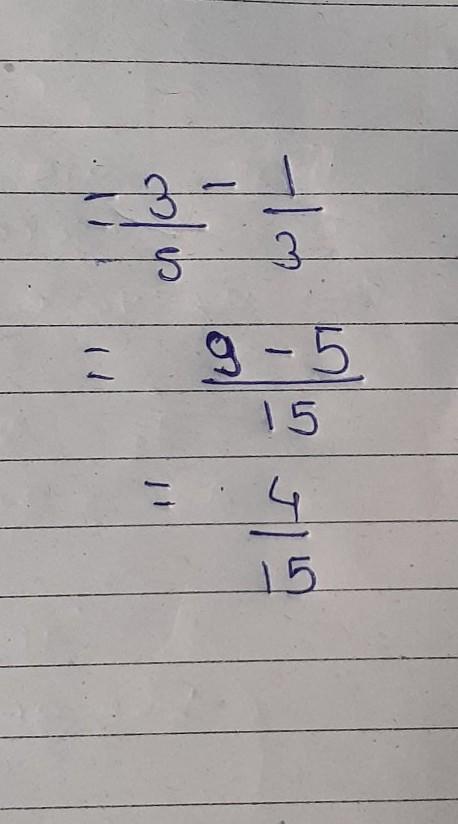 = 3/5 - 1/3
= (9 - 5)/15
= 4/15